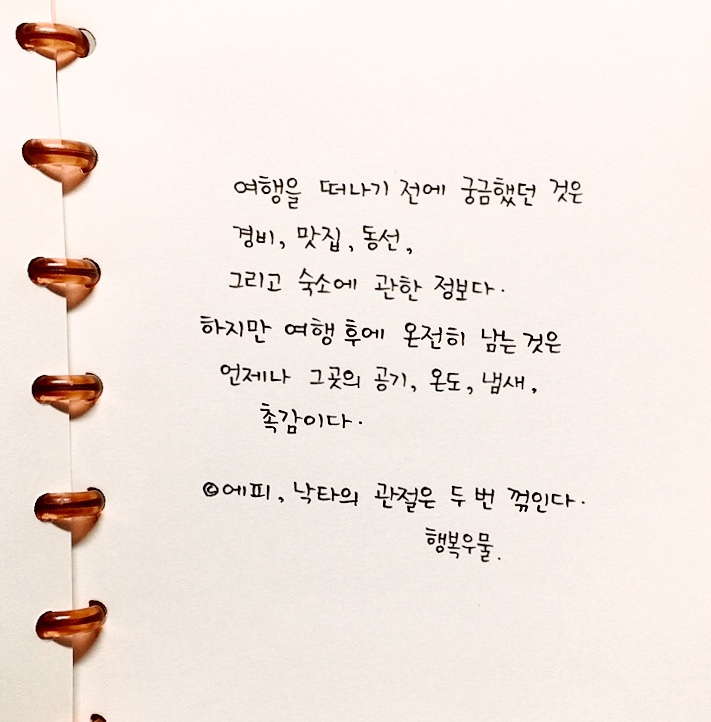 여행을 떠나기 전에 궁금했던 것은
경비, 맛집, 동선,
그리고 숙소에 관한 정보다.
하지만 여행 후에 온전히 남는 것은
언제나 그곳의 공기, 온도, 냄새,
촉감이다.
©에피, 낙타의 관절은 두 번 꺾인다.
행복우물.